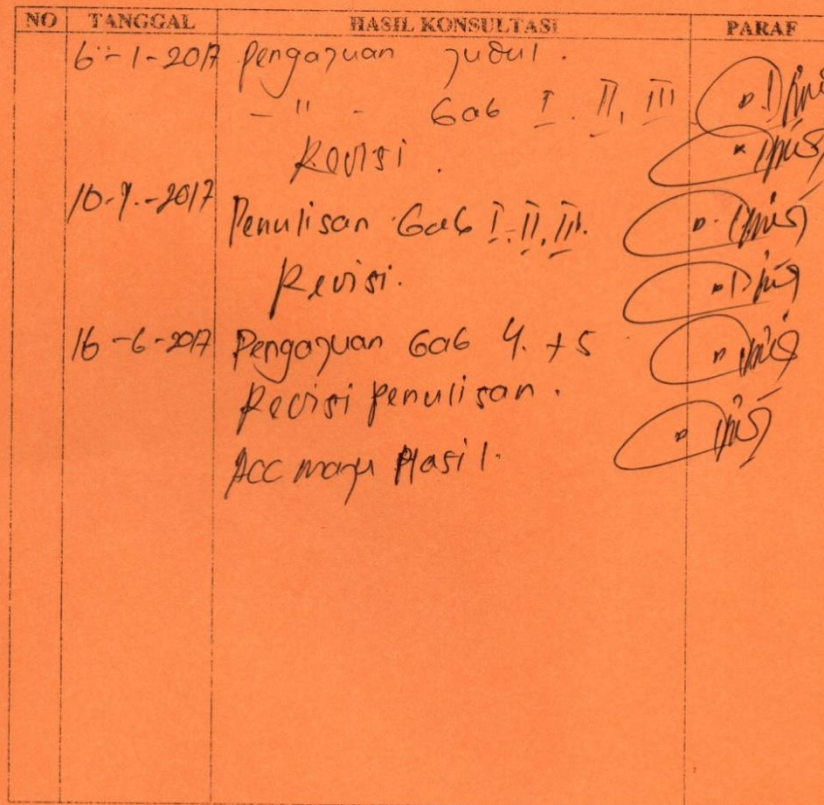 NO TANGGAL HASIL KONSULTASI PARAF
6-1-2017 Pengajuan judul.
- " - Bab I. II, III
Revisi.
10-9.-2017 Penulisan Bab I. II, III.
Revisi.
16-6-2017 Pengajuan Bab 4. +5
Revisi penulisan.
Acc maju Hasil.